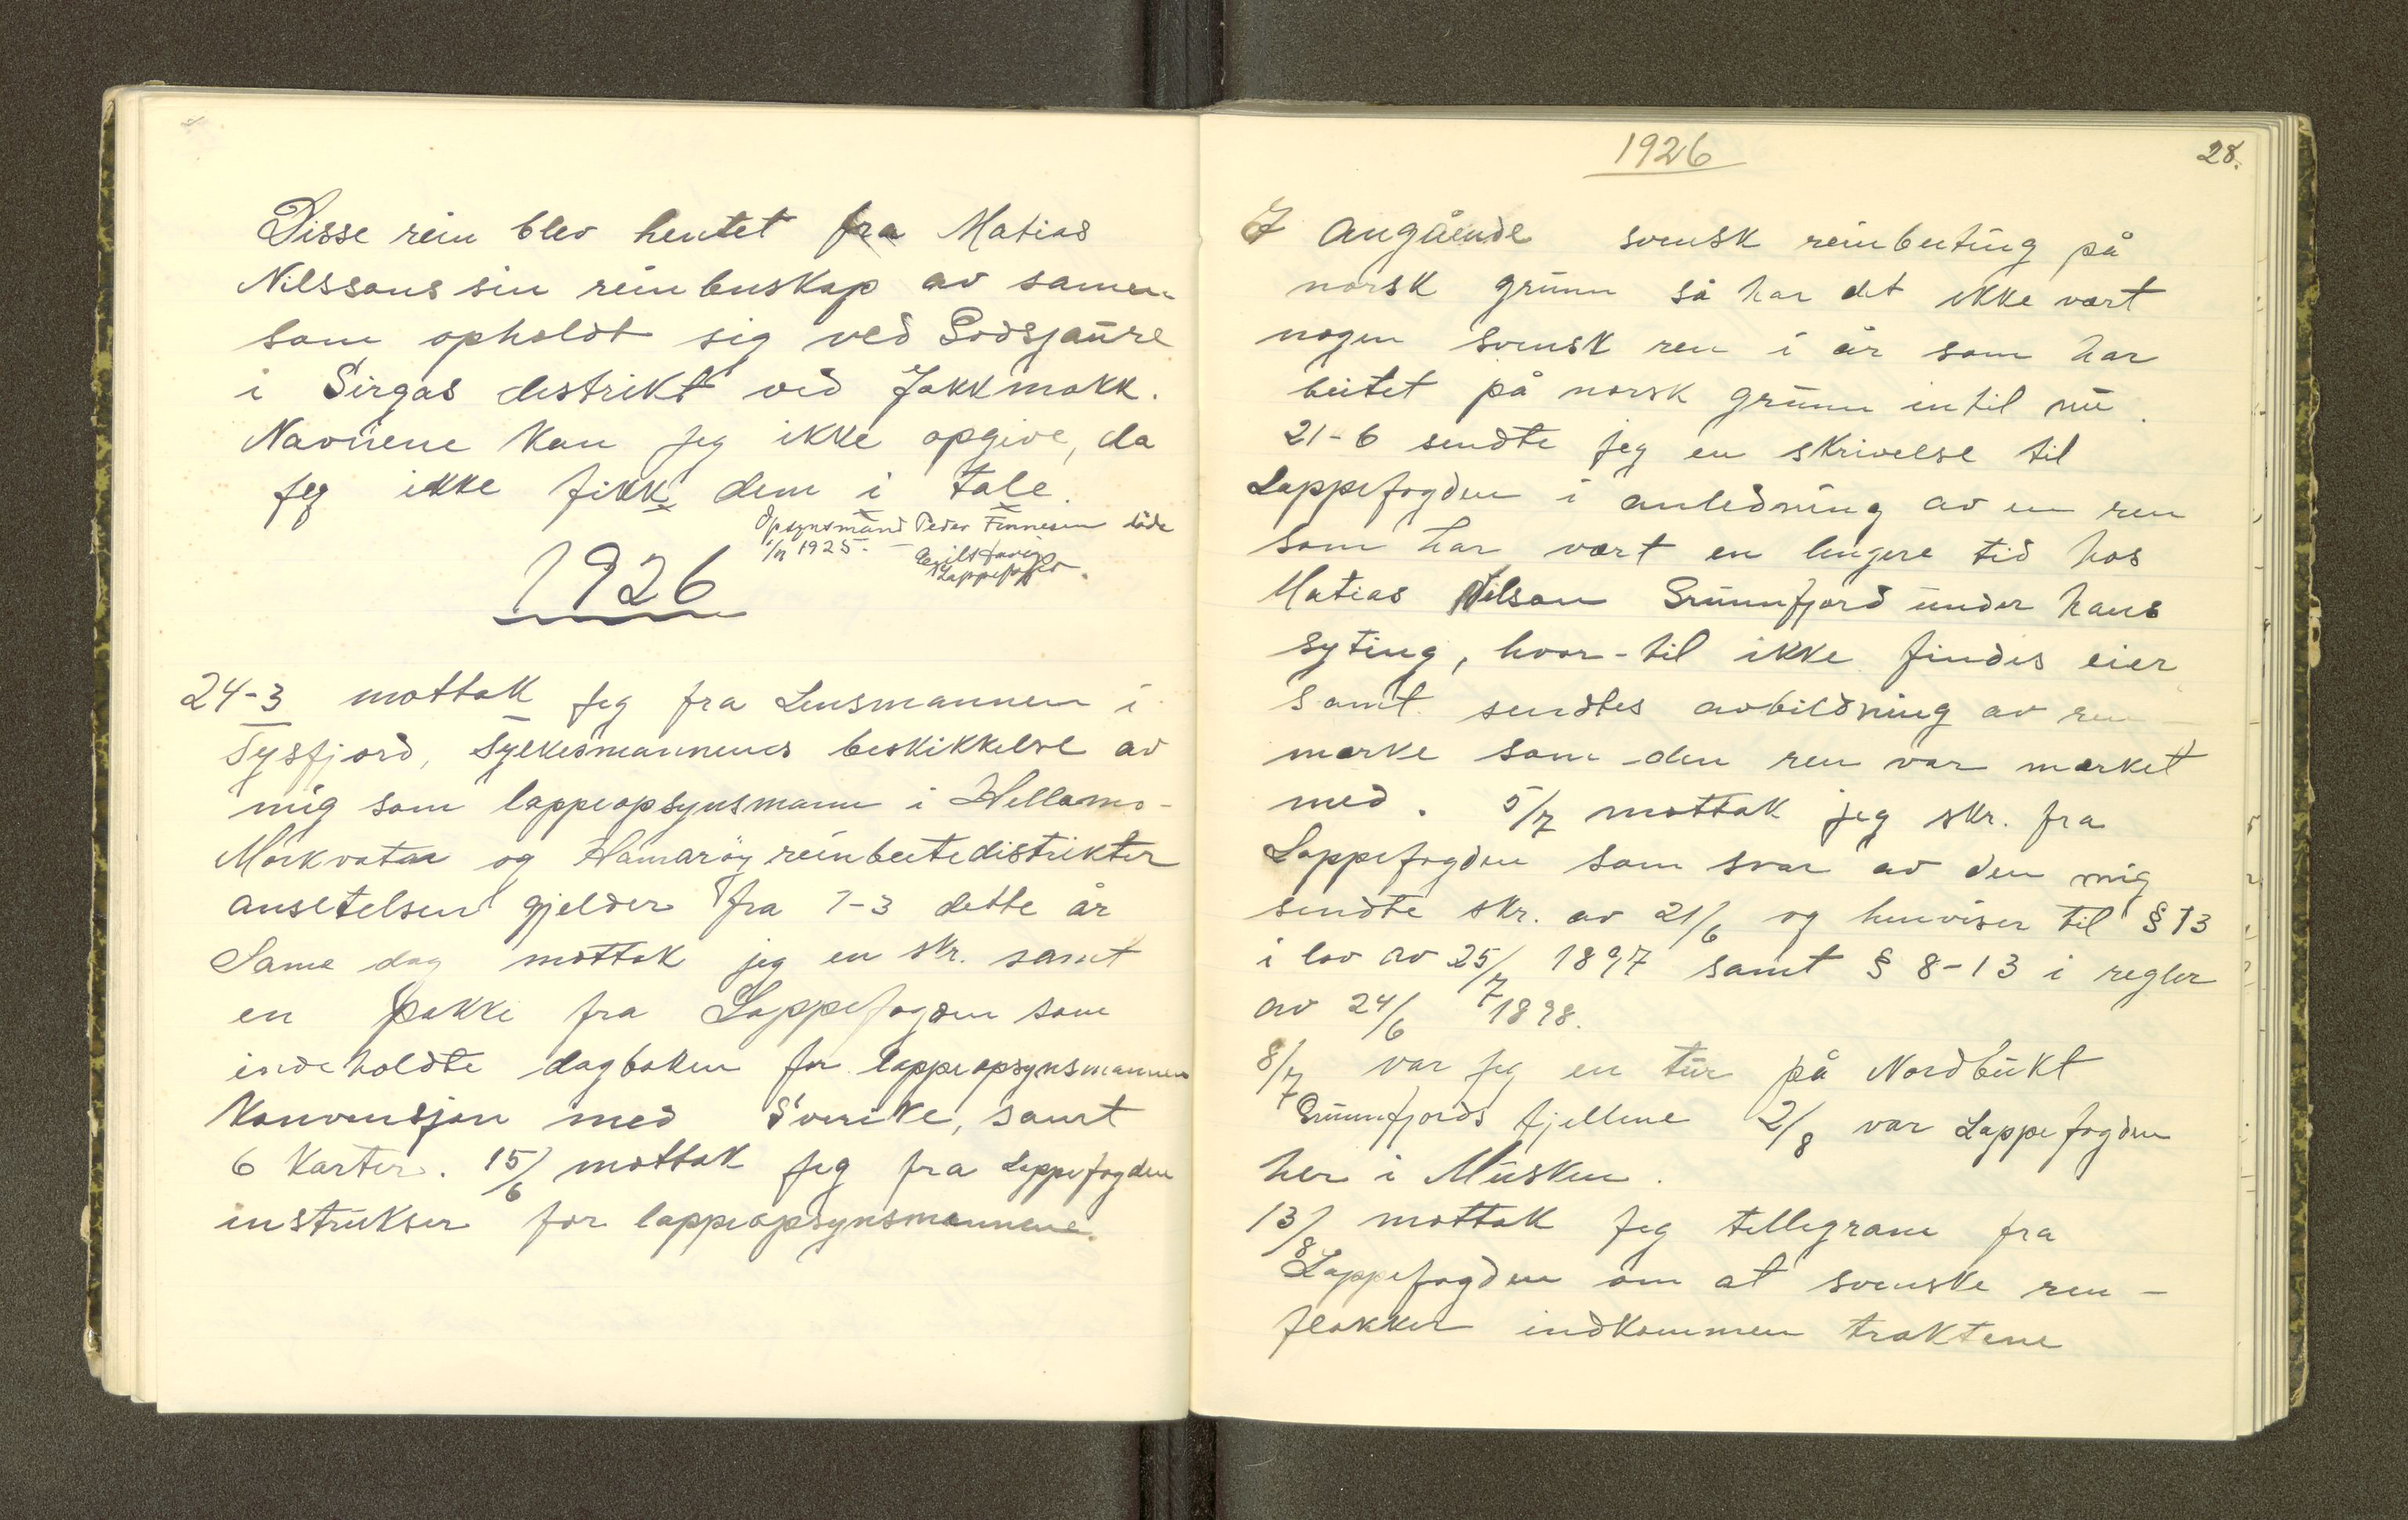 Disse rein blev hentet fra Matias
Nilssons sin reinbuskap av samer
som opholdt sig ved Sodsjaure
i Sirgas destrikt ved Jokkmokk.
Navnene kan jeg ikke opgive, da
jeg ikke fikk dem i tale.
Opsynsmand Peder Finnesen döde
1925.
Lappefogd.
1926
24-3 mottok jeg fra Lensmannen i
Tysfjord, Fylkesmannens beskikkelse av
mig som lappeopsynsmann i Hellamo-
Mörkvatn og Hamaröy reinbeitedistrikter
ansetelsen gjelder fra 1-3 dette år
Same dag mottok jeg en skr. samt
en pakke fra Lappefogden som
indeholdte dagboken for lappeopsynsmannen
Konvensjon med Sverike, samt
6 Karter. 15/6 mottok jeg fra Lappefogden
instrukser for lappeopsynsmennene.
1926
28.
Angående svensk reinbeiting på
norsk grunn så har det ikke vært
nogen svensk ren i år som har
beitet på norsk grunn intil nu.
21-6 sendte jeg en skrivelse til
Lappefogden i anledning av en ren
som har vært en lengere tid hos
Matias Nilson Grunnfjord under hans
syting, hvor-til ikke findes eier
Samt sendtes avbildning av ren-
merke som den ren var merket
med. 5/7 mottok jeg skr. fra
Lappefogden som svar av den mig
sendte skr. av 21/6 og henviser til § 13
i lov av 25/7 1897 samt § 8-13 i regler
av 24/6 1898.
8/7 var jeg en tur på Nordbukt
Grunnfjords fjellene 2/8 var Lappefogden
her i Musken.
13/8 mottok jeg tellegram fra
Lappefogden om at svenske ren-
flokker indkommen traktene